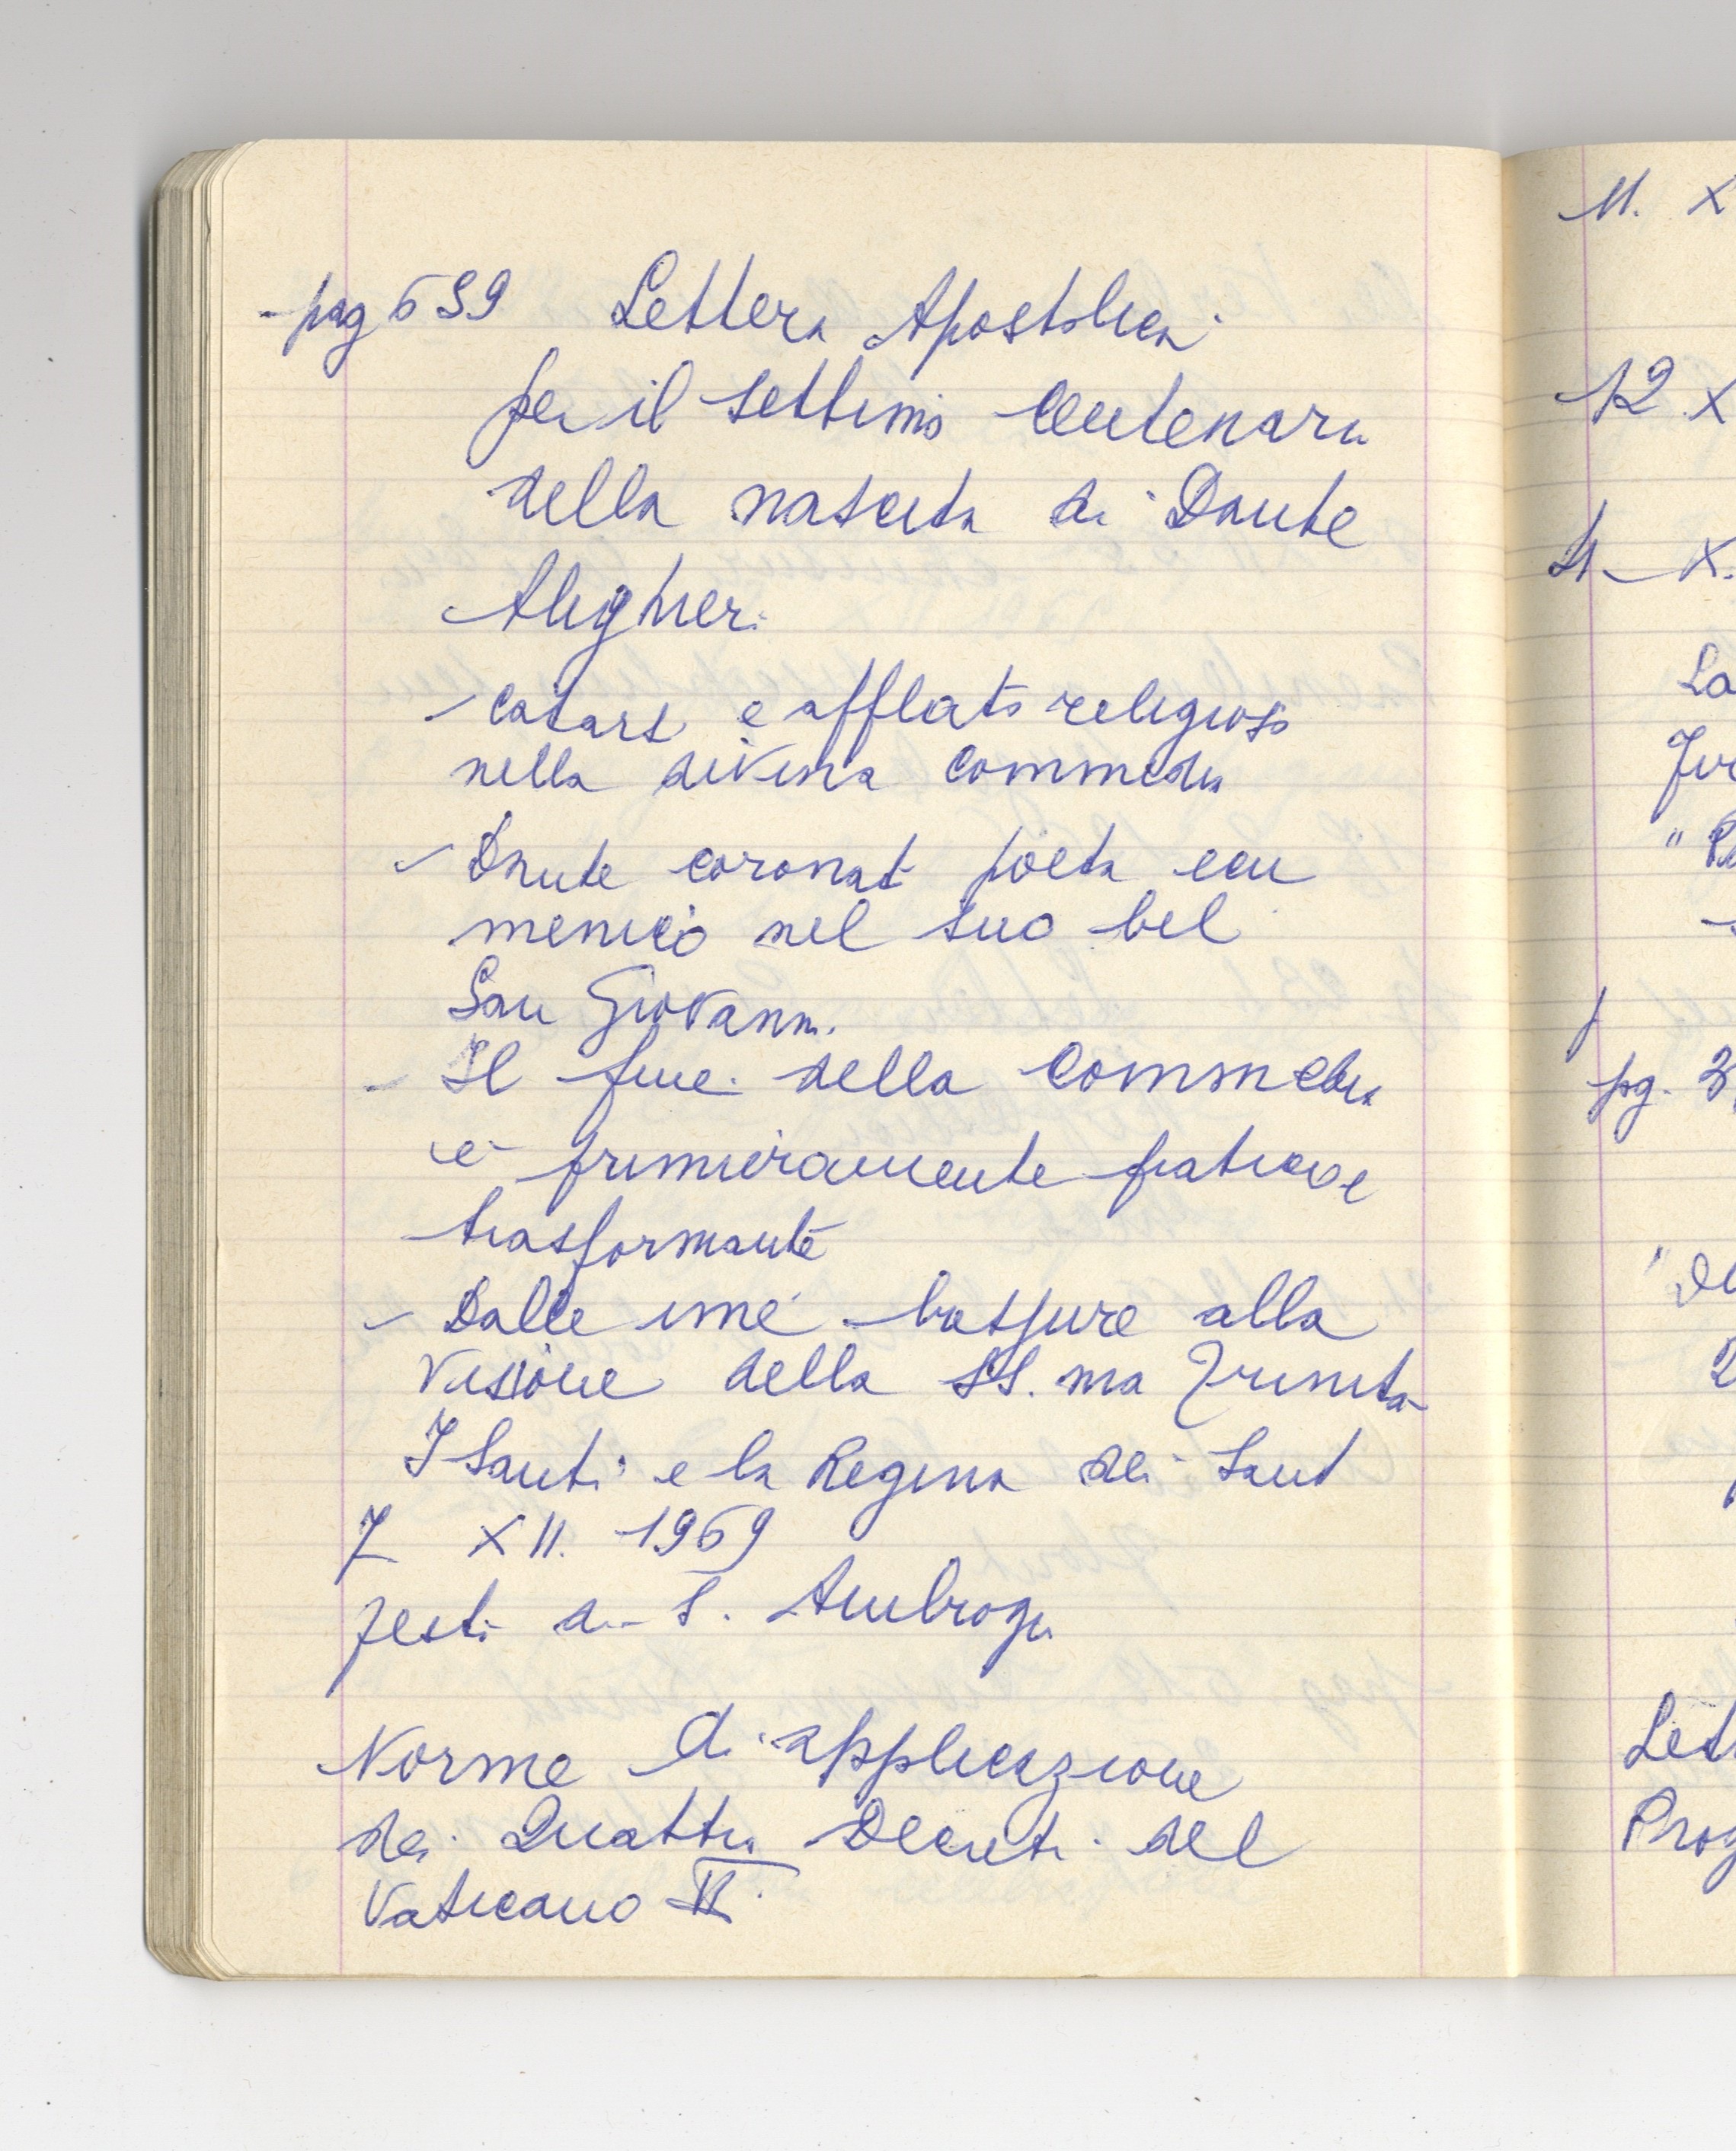 pag 599 Lettera Apostolica
per il settimo centenario
della nascita di Dante
Alighieri
- Catarsi e afflato religioso
nella divina Commedia
- Dante coronato poeta ecu
menico nel suo bel
San Giovanni.
- Il fine della Commedia
è primieramente pratico e
trasformante
- Dalle ime bassure alla
Visione della SS.ma Trinità
I Santi e la Regina dei Santi
7 XII. 1969
festa di S. Ambrogio
Norme di applicazione
dei Quattro Decreti del
Vaticano II
11. X
12 X
X.
La
"
pg. 3
"
Let
Prog